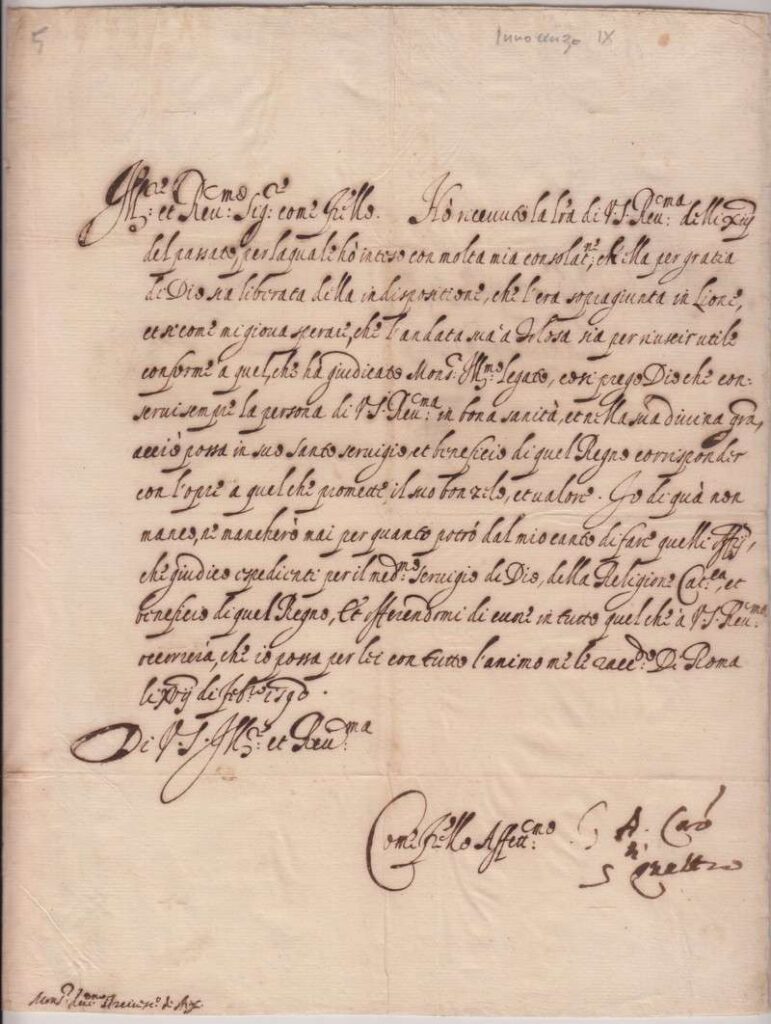 5
Innocenzo IX
Ill.re et Rev.mo Sig.re come Fr̃ello. Hò ricevuto la lr̃a di V.S. Rev.ma delli xiij
del passato, per la quale hò inteso con molta mia consolat.ne, ch'ella per gratia
di Dio sia liberata della indispositione, che l'era sopragiunta in Lione,
et si come mi giova sperare, che l'andata sua à Tolosa sia per riuscir utile
conforme a quel, che ha giudicato Mons.r Ill.mo Legato, cosi prego Dio che con:
servi sempre la persona di V.S. Rev.ma in bona sanità, et nella sua divina gra,
acciò possa in suo santo servigio, et beneficio di quel Regno corrisponder
con l'opre a quel che promette il suo bon zelo, et valore. Io di quà non
manco, ne mancherò mai per quanto potrò dal mio canto di fare quelli offitij,
che giudico espedienti per il med.mo servigio di Dio, della Religione Cat.ca, et
beneficio di quel Regno, Et offerendomi di cuore in tutto quel che à V.S. Rev.ma
occorrerà, che io possa per lei con tutto l'animo me le racc.do Di Roma
li xvij di feb.ro 1590.
Di V.S. Ill.re et Rev.ma
Come Fr̃ello Aff.mo G A. Car.
di
S Quattro
Mons.r Arcivesc.o di